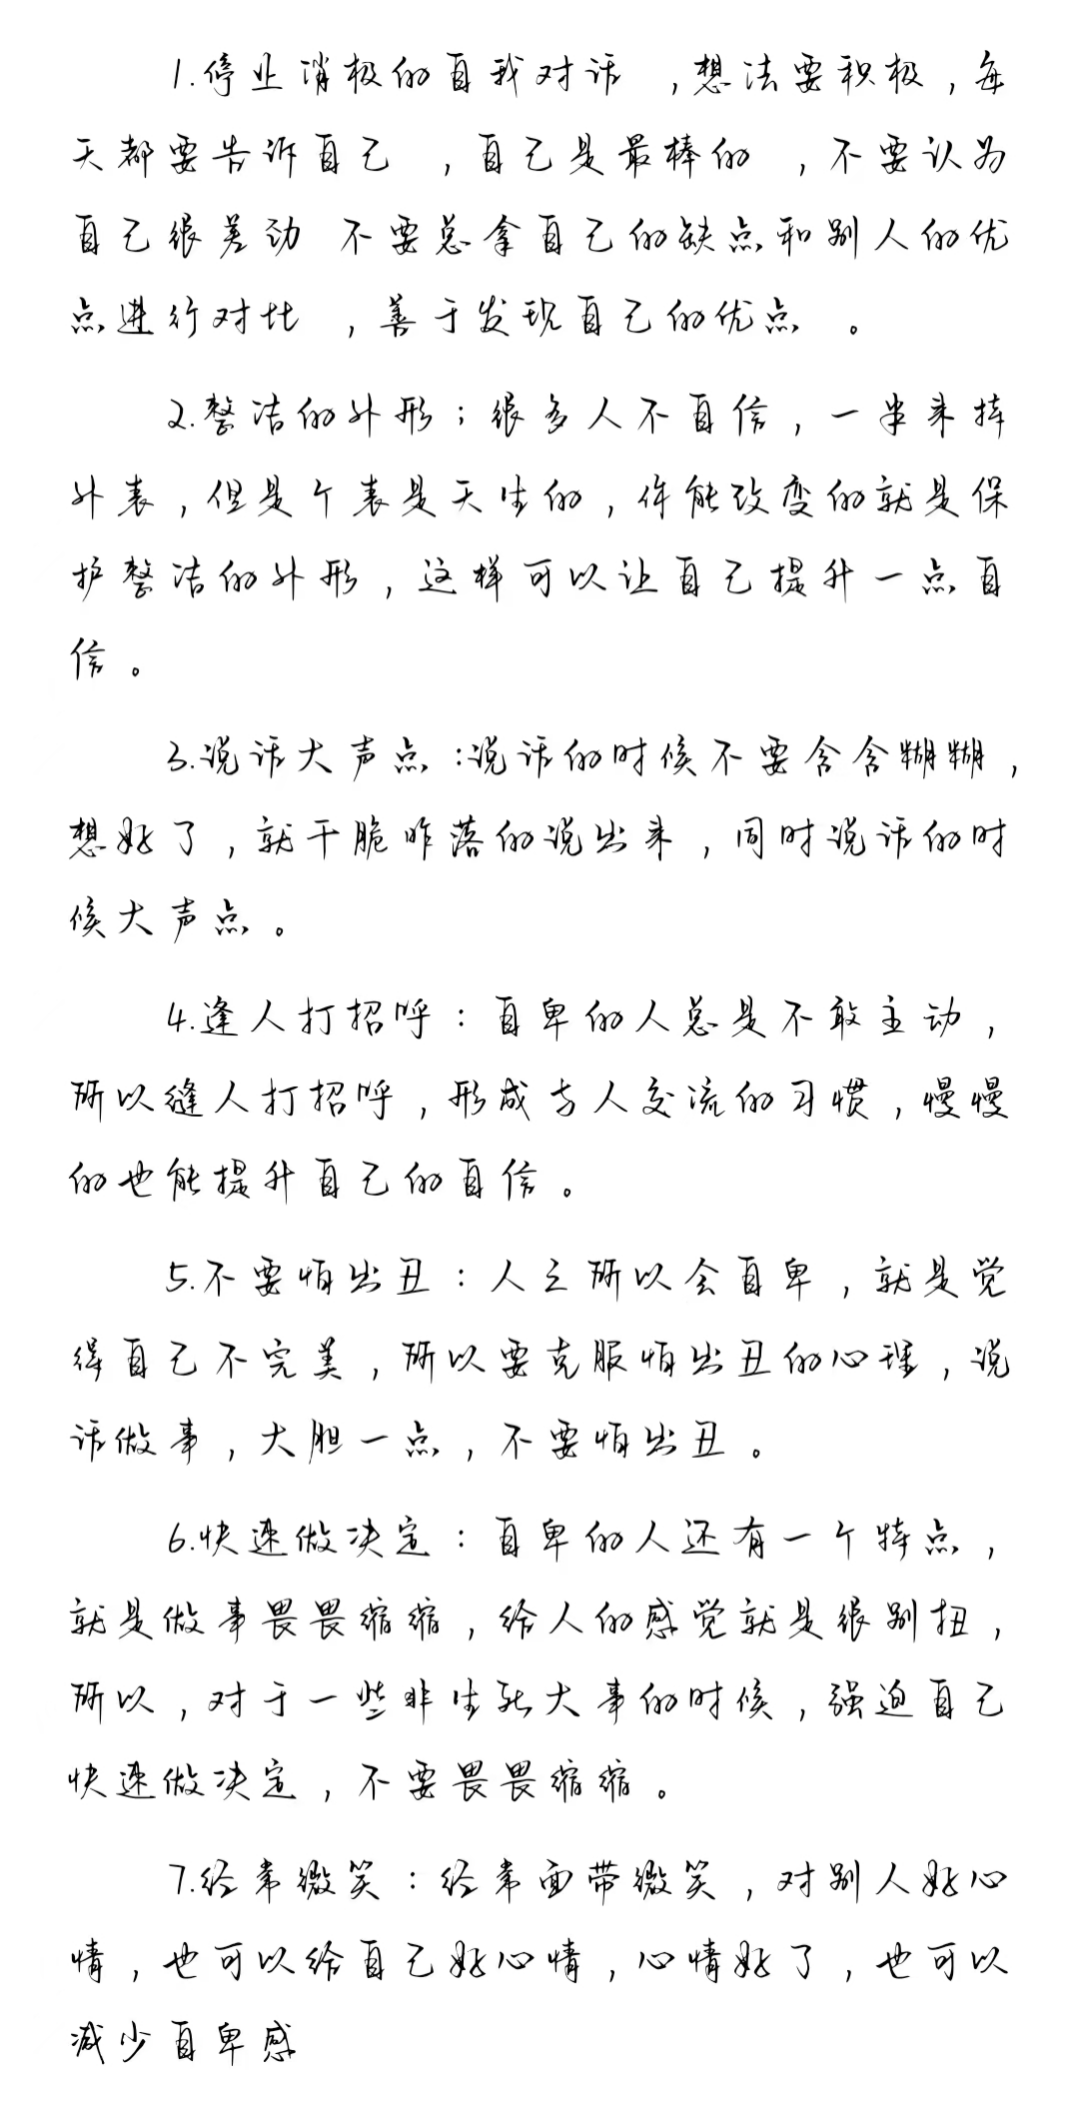 1.停止消极的自我对话 ,想法要积极,每
天都要告诉自己 ,自己是最棒的 ,不要认为
自己很差劲 不要总拿自己的缺点和别人的优
点进行对比 ,善于发现自己的优点 。
2.整洁的外形;很多人不自信,一半来
外表,但是个表是天生的,能改变的就是保
护整洁的外形,这样可以让自己提升一点自
信。
3.说话大声点:说话的时候不要含含糊糊,
想好了,就干脆昨落的说出来,同时说话的时
候大声点。
4.逢人打招呼:自卑的人总是不敢主动,
所以缝人打招呼,形成与人交流的习惯,慢慢
的也能提升自己的自信。
5.不要怕出丑:人之所以会自卑,就是觉
得自己不完美,所以要克服怕出丑的心理,说
话做事,大胆一点,不要怕出丑。
6.快速做决定:自卑的人还有一个特点,
就是做事畏畏缩缩,给人的感觉就是很别扭,
所以,对于一些非生死大事的时候,强迫自己
快速做决定,不要畏畏缩缩。
7.经常微笑:经常面带微笑,对别人好心
情,也可以给自己好心情,心情好了,也可以
减少自卑感